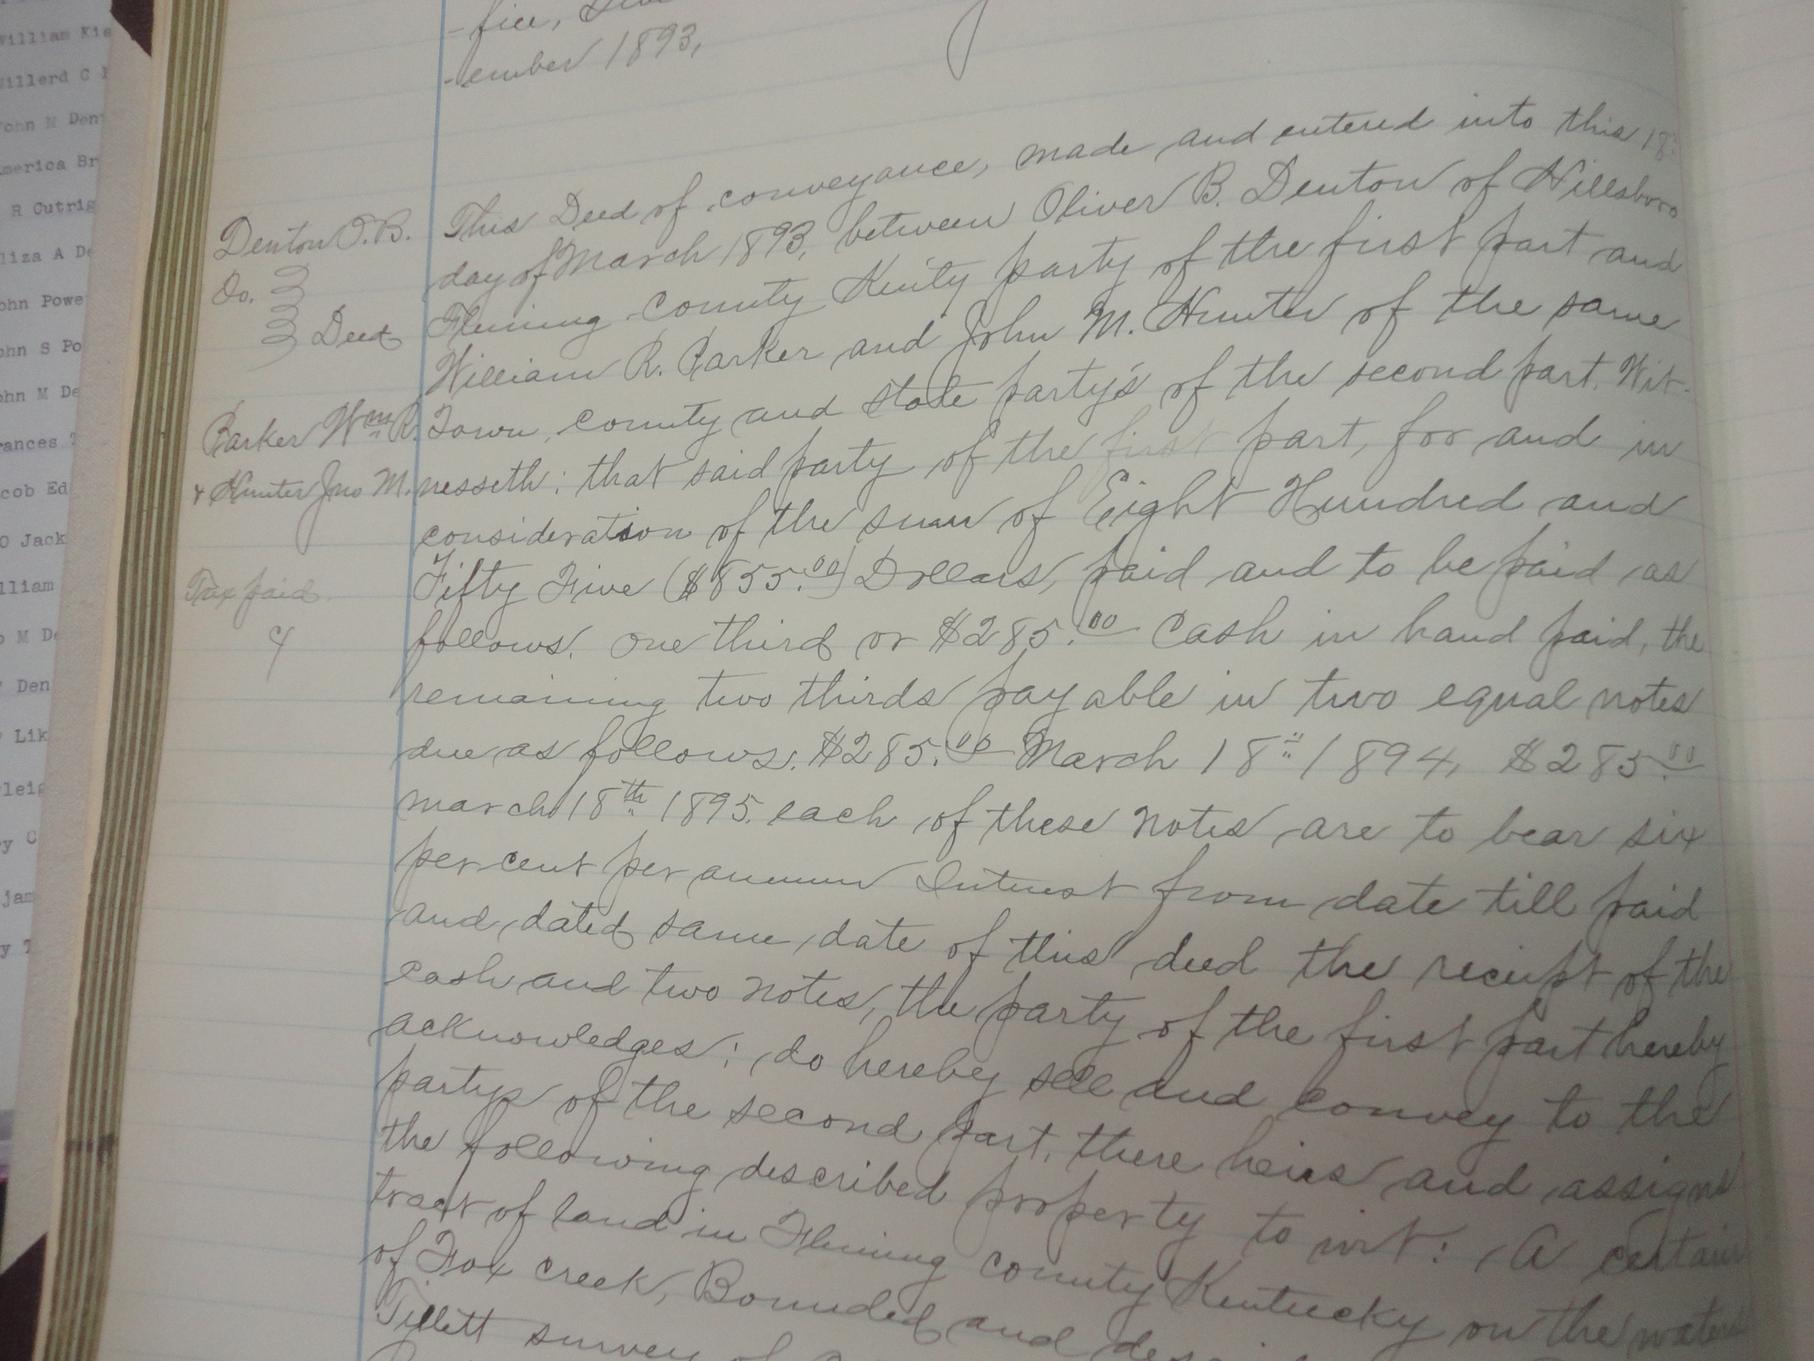 William Kis
Willerd C
John M Den
America Br
R Cutrig
liza A De
ohn Powe
ohn S Po
ohn M De
rances
cob Ed
O Jack
lliam
M De
Den
Lik
leig
y C
jam
y T
-fice,
-ember 1893,
Denton O. B.
Do.
Deed
Parker Wm R.
& Hunter Jno M.
Tax paid
This Deed of conveyance, made and entered into this 18
day of March 1893, between Oliver B. Denton of Hillsboro
Fleming County Kenty party of the first part and
William R. Parker and John M. Hunter of the same
Town, county and state party's of the second part. Wit-
nesseth: that said party of the first part, for and in
consideration of the sum of Eight Hundred and
Fifty Five ($855.00) Dollars, paid and to be paid as
follows. One third or $285.00 Cash in hand paid, the
remaining two thirds payable in two equal notes
due as follows. $285.00 March 18" 1894, $285.00
march 18th 1895. each of these notes are to bear six
per cent per annum Interest from date till paid
and dated same date of this deed the receipt of the
cash and two notes, the party of the first part hereby
acknowledges; do hereby sell and convey to the
partys of the second part, there heirs and assigns
the following described property to wit: A certain
tract of land in Fleming county Kentucky on the waters
of Fox creek, Bounded and
Tillett survey of